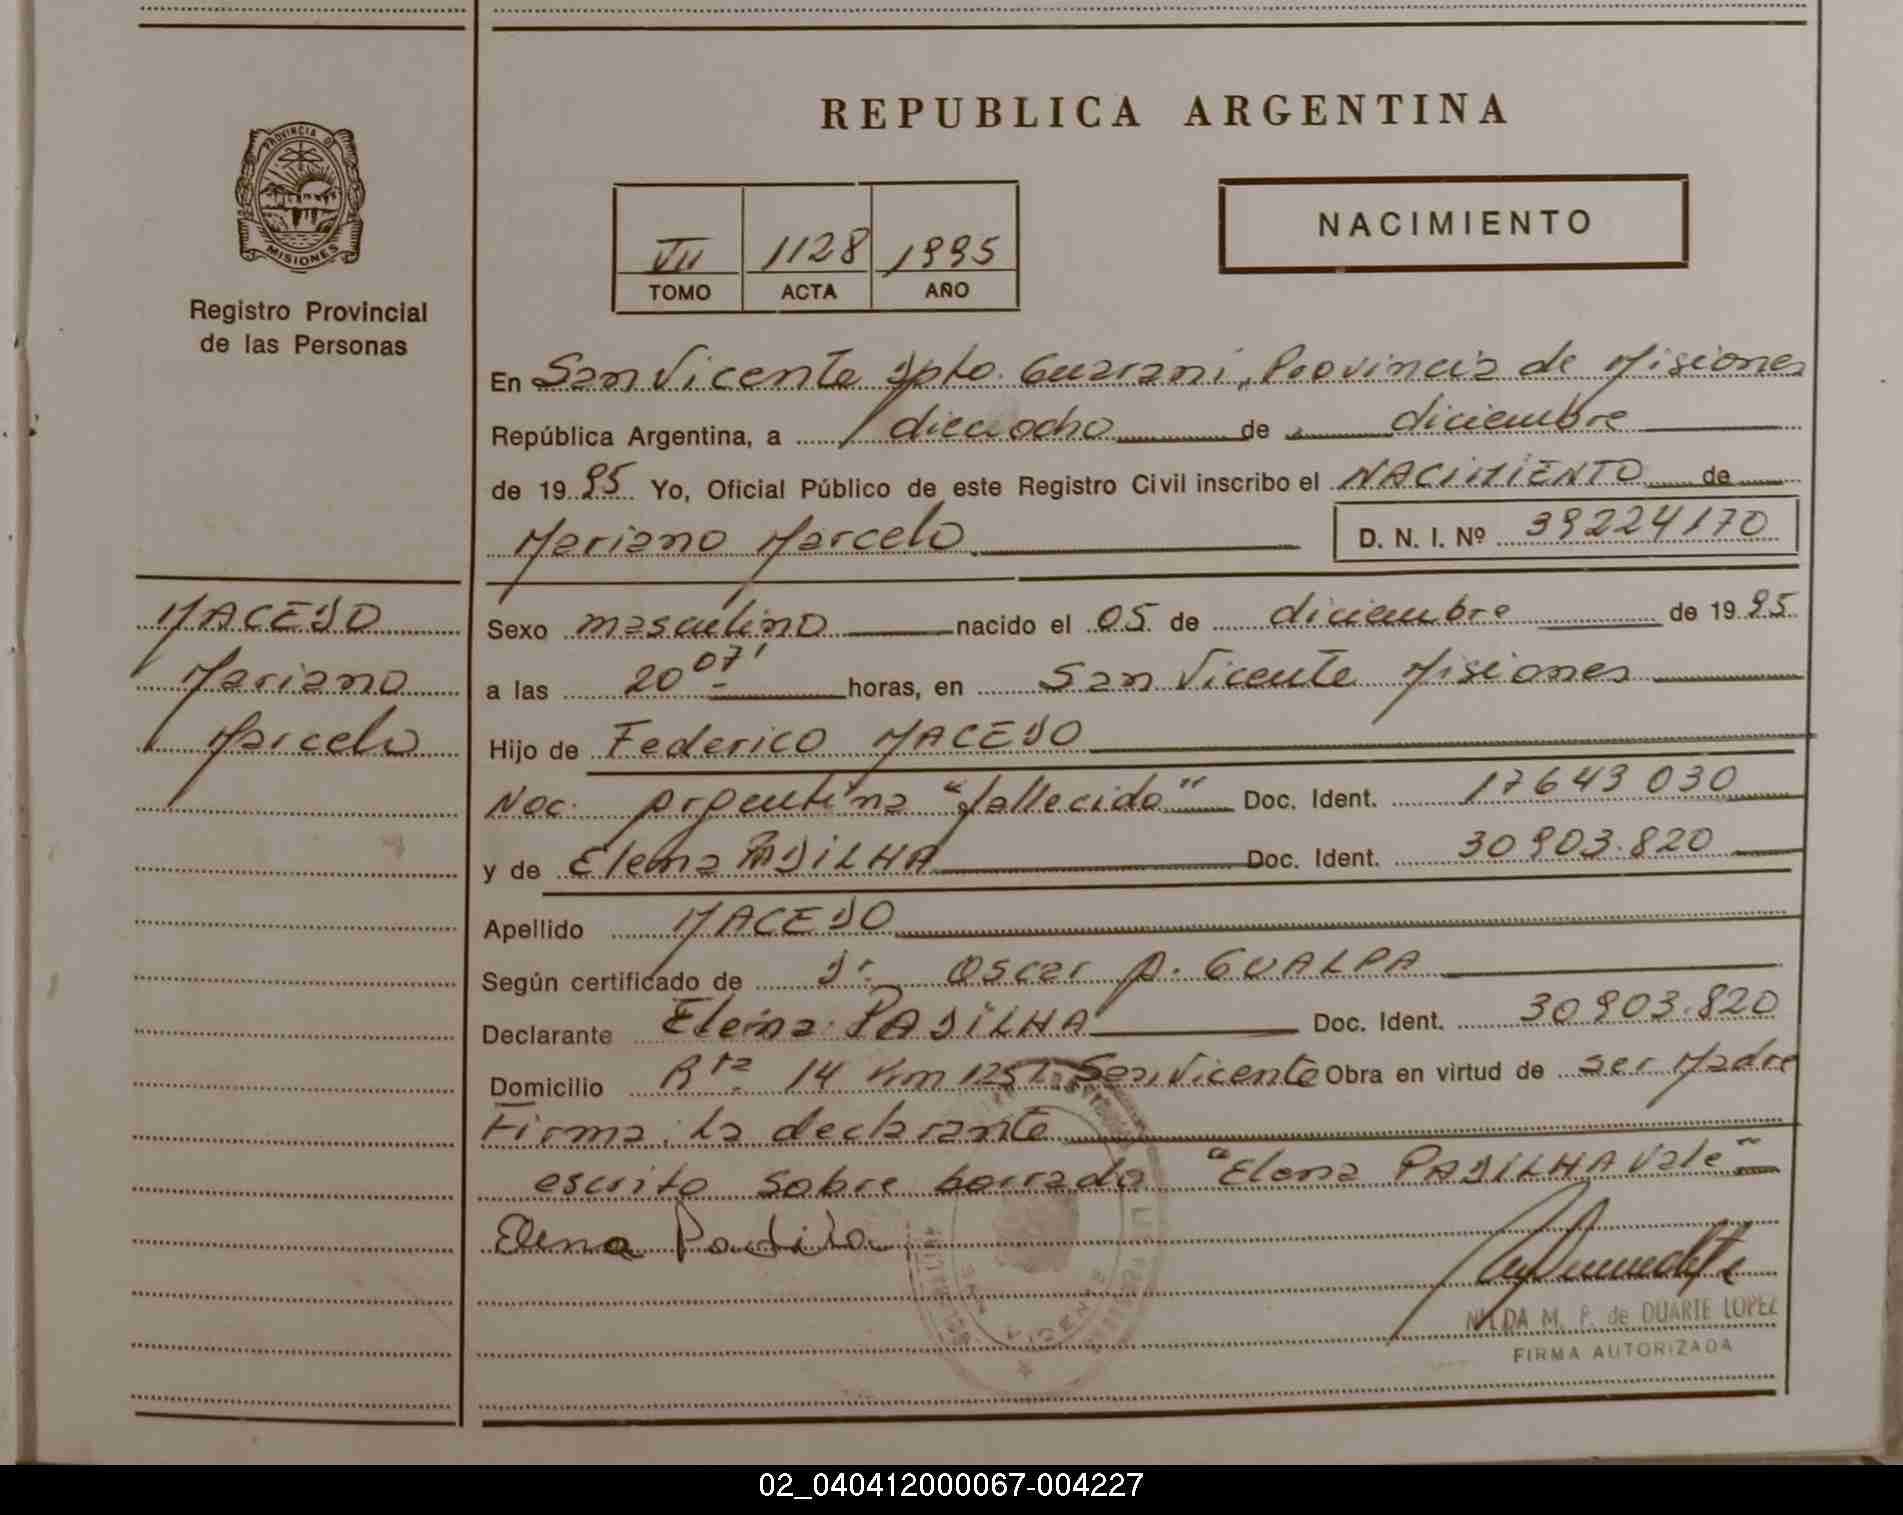 REPUBLICA ARGENTINA
PROVINCIA DE
MISIONES
Registro Provincial
de las Personas
VII 1128 1995
TOMO ACTA AÑO
NACIMIENTO
En San Vicente Dpto. Guarani, Provincia de Misiones
República Argentina, a dieciocho de diciembre
de 1995 Yo, Oficial Público de este Registro Civil inscribo el NACIMIENTO de
Mariano Marcelo D. N. I. Nº 39224170
MACEDO
Mariano
Marcelo
Sexo masculino nacido el 05 de diciembre de 1995
a las 20 07' horas, en San Vicente Misiones
Hijo de Federico MACEDO
Nac. argentina "fallecido" Doc. Ident. 17643030
y de Elena PADILHA Doc. Ident. 30903.820
Apellido MACEDO
Según certificado de Dr. Oscar A. GUALPA
Declarante Elena PADILHA Doc. Ident. 30903.820
Domicilio Rta 14 Km 1251 San Vicente Obra en virtud de ser Madre
Firma: La declarante
escrito sobre borrado "Elena PADILHA Vale"
Elena Padilha
SAN VICENTE
NILDA M. P. de DUARTE LOPEZ
FIRMA AUTORIZADA
02_040412000067-004227